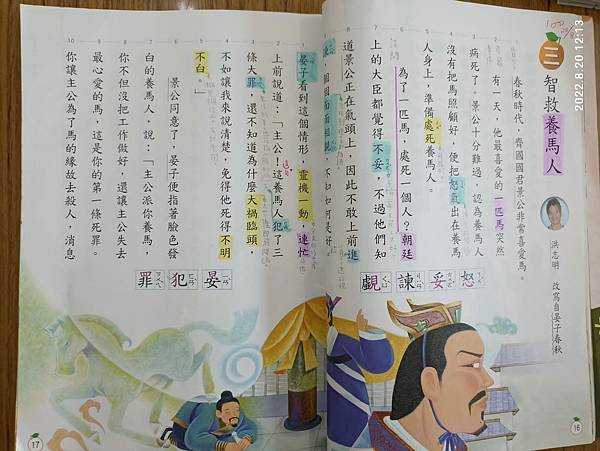 三 智救養馬人
洪志明 改寫自晏子春秋
春秋時代，齊國國君景公非常喜愛馬。
有一天，他最喜愛的一匹馬突然
病死了。景公十分難過，認為養馬人
沒有把馬照顧好，便把怒氣出在養馬
人身上，準備處死養馬人。
為了一匹馬，處死一個人？朝廷
上的大臣都覺得不妥，不過他們知
道景公正在氣頭上，因此不敢上前進
諫，個個面面相覷，不知如何是好。
怒 妥 諫 覷
16
晏子看到這個情形，靈機一動，連忙
上前說道：「主公！這養馬人犯了三
條大罪，還不知道為什麼大禍臨頭，
不如讓我來說清楚，免得他死得不明
不白。」
景公同意了，晏子便指著臉色發
白的養馬人，說：「主公派你養馬，
你不但沒把工作做好，還讓主公失去
最心愛的馬，這是你的第一條死罪。
你讓主公為了馬的緣故去殺人，消息
晏 犯 罪
17
2022.8.20 12:13